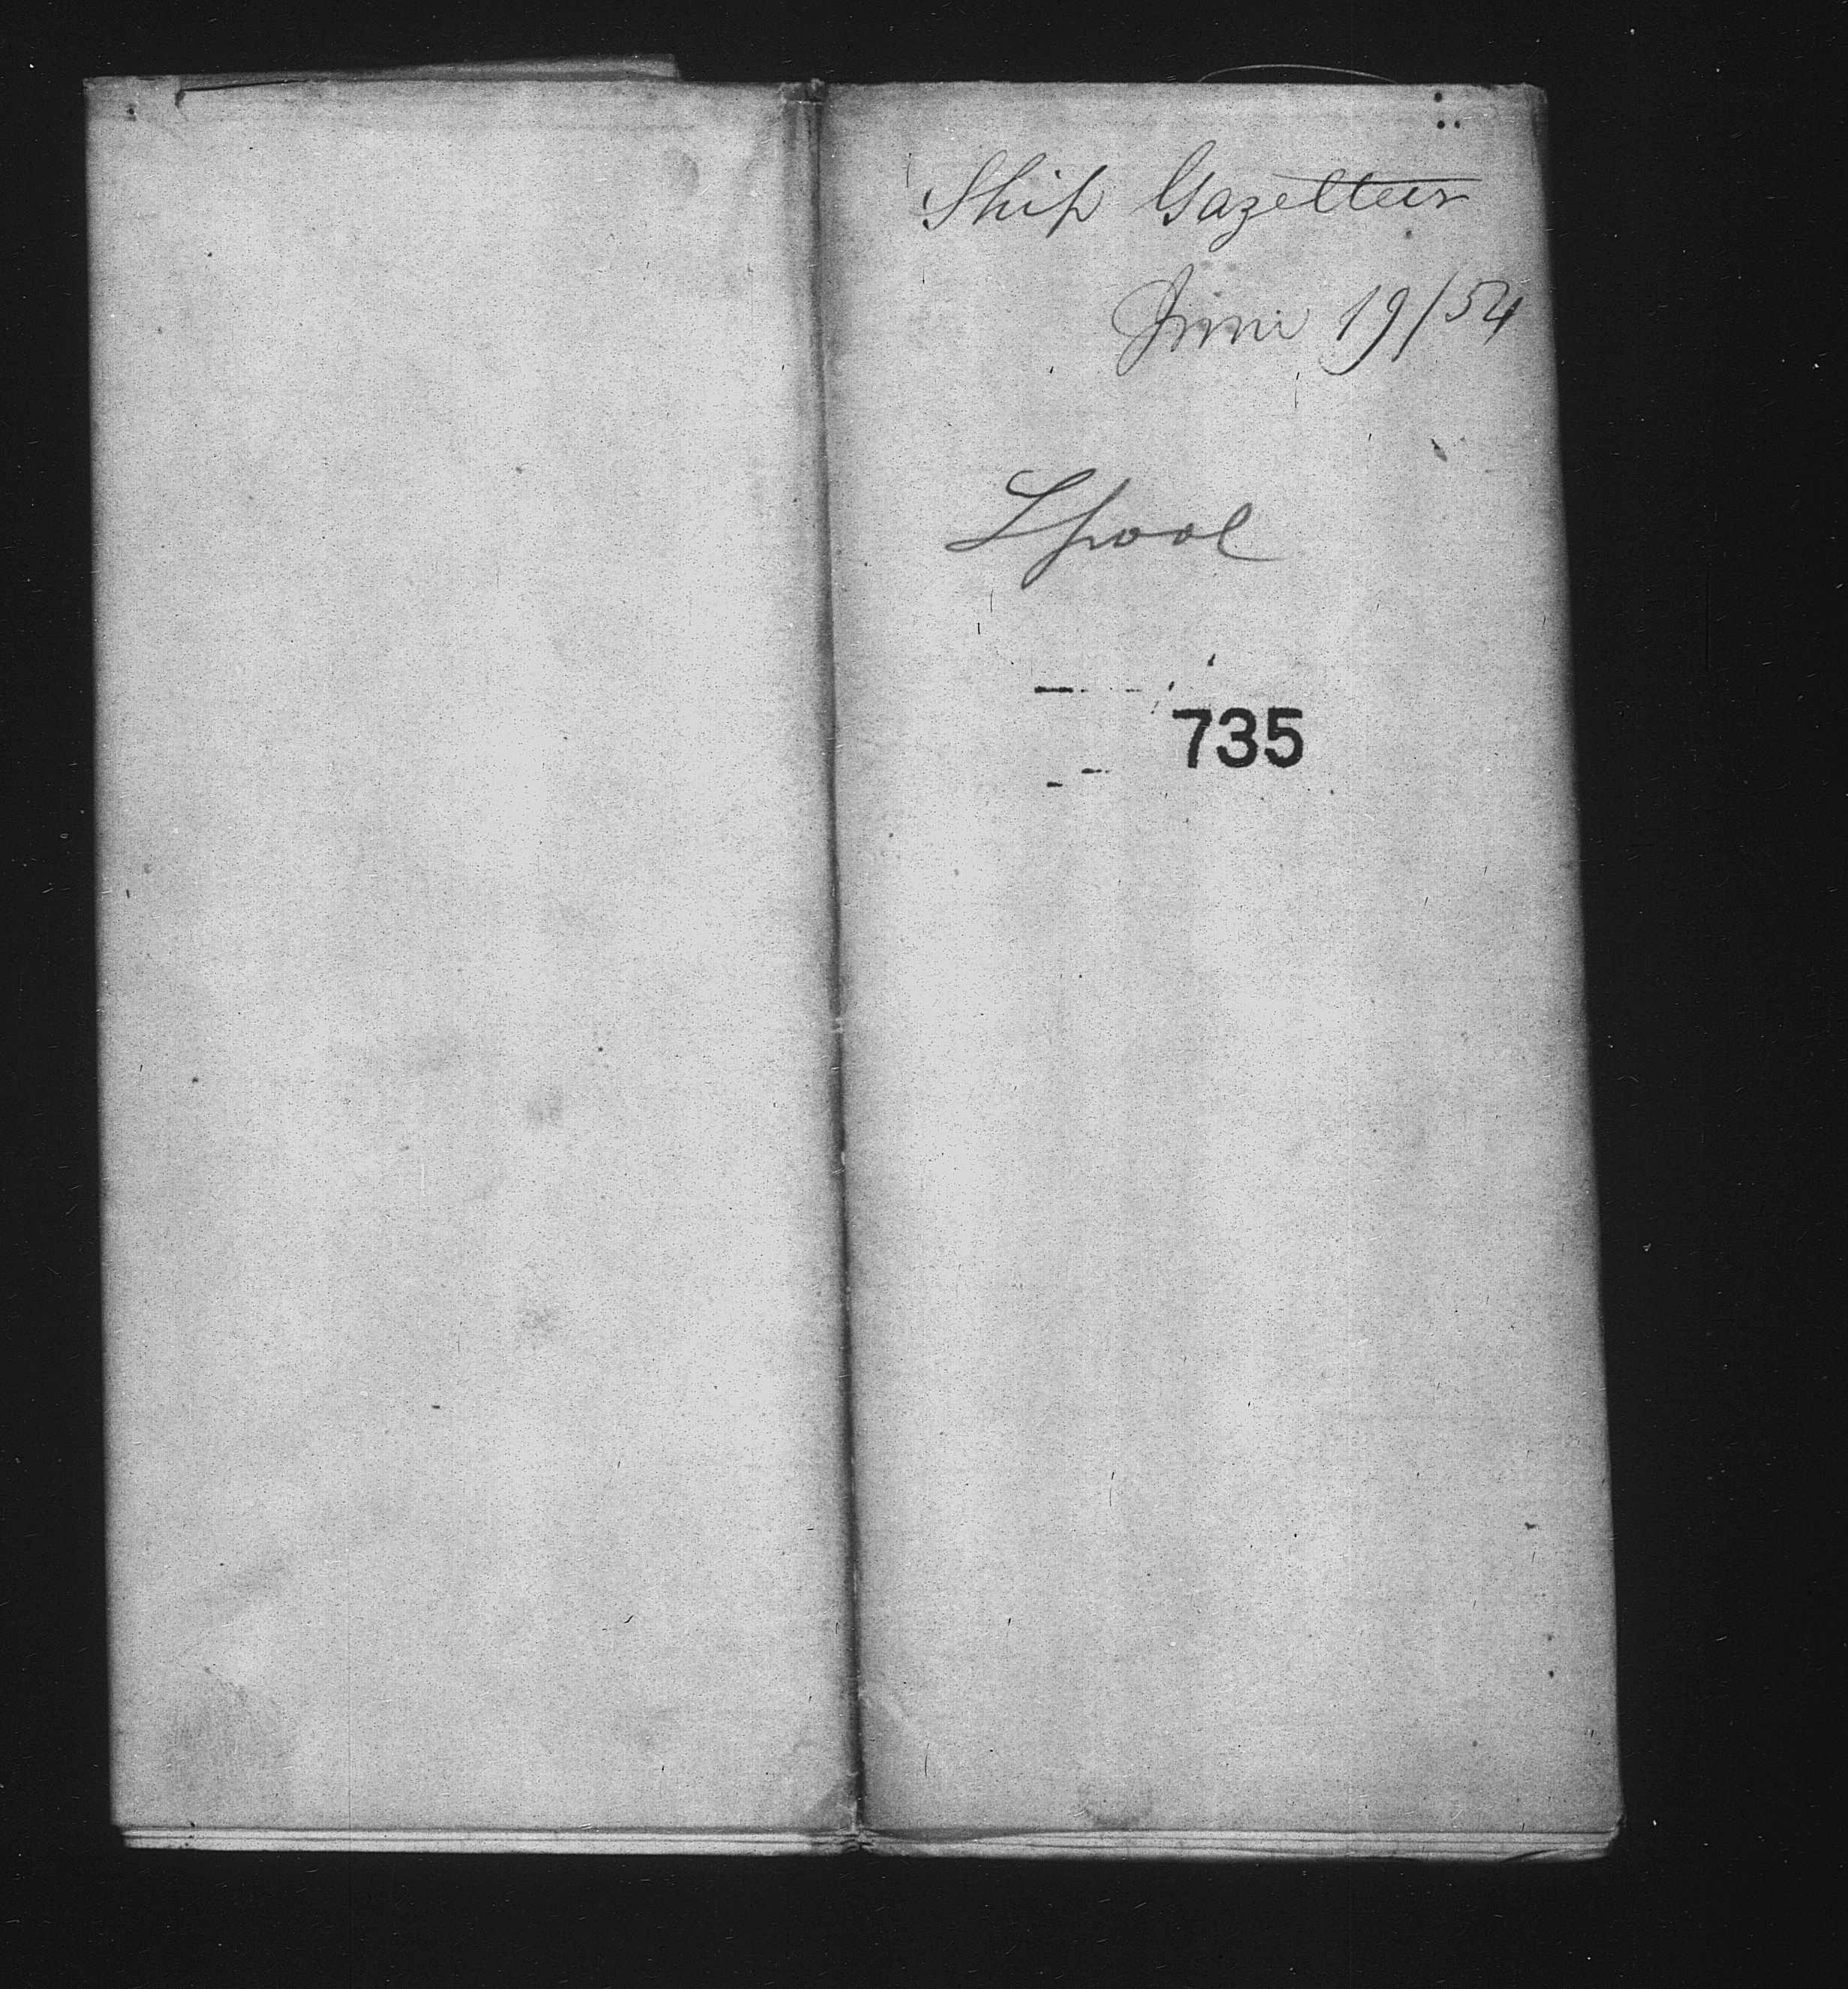 Ship Gazetteer
June 19/54
Lpool
735